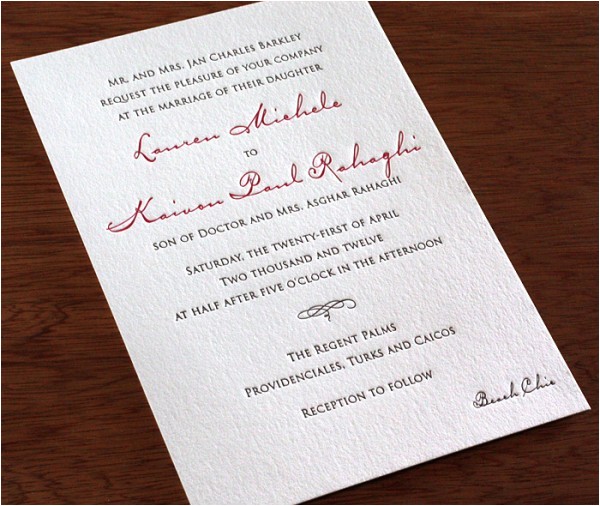 Mr. and Mrs. Jan Charles Barkley
request the pleasure of your company
at the marriage of their daughter
Lauren Michele
to
Kaivon Paul Rahaghi
son of Doctor and Mrs. Asghar Rahaghi
Saturday, the twenty-first of April
Two thousand and twelve
at half after five o'clock in the afternoon
The Regent Palms
Providenciales, Turks and Caicos
Reception to follow
Beach Chic